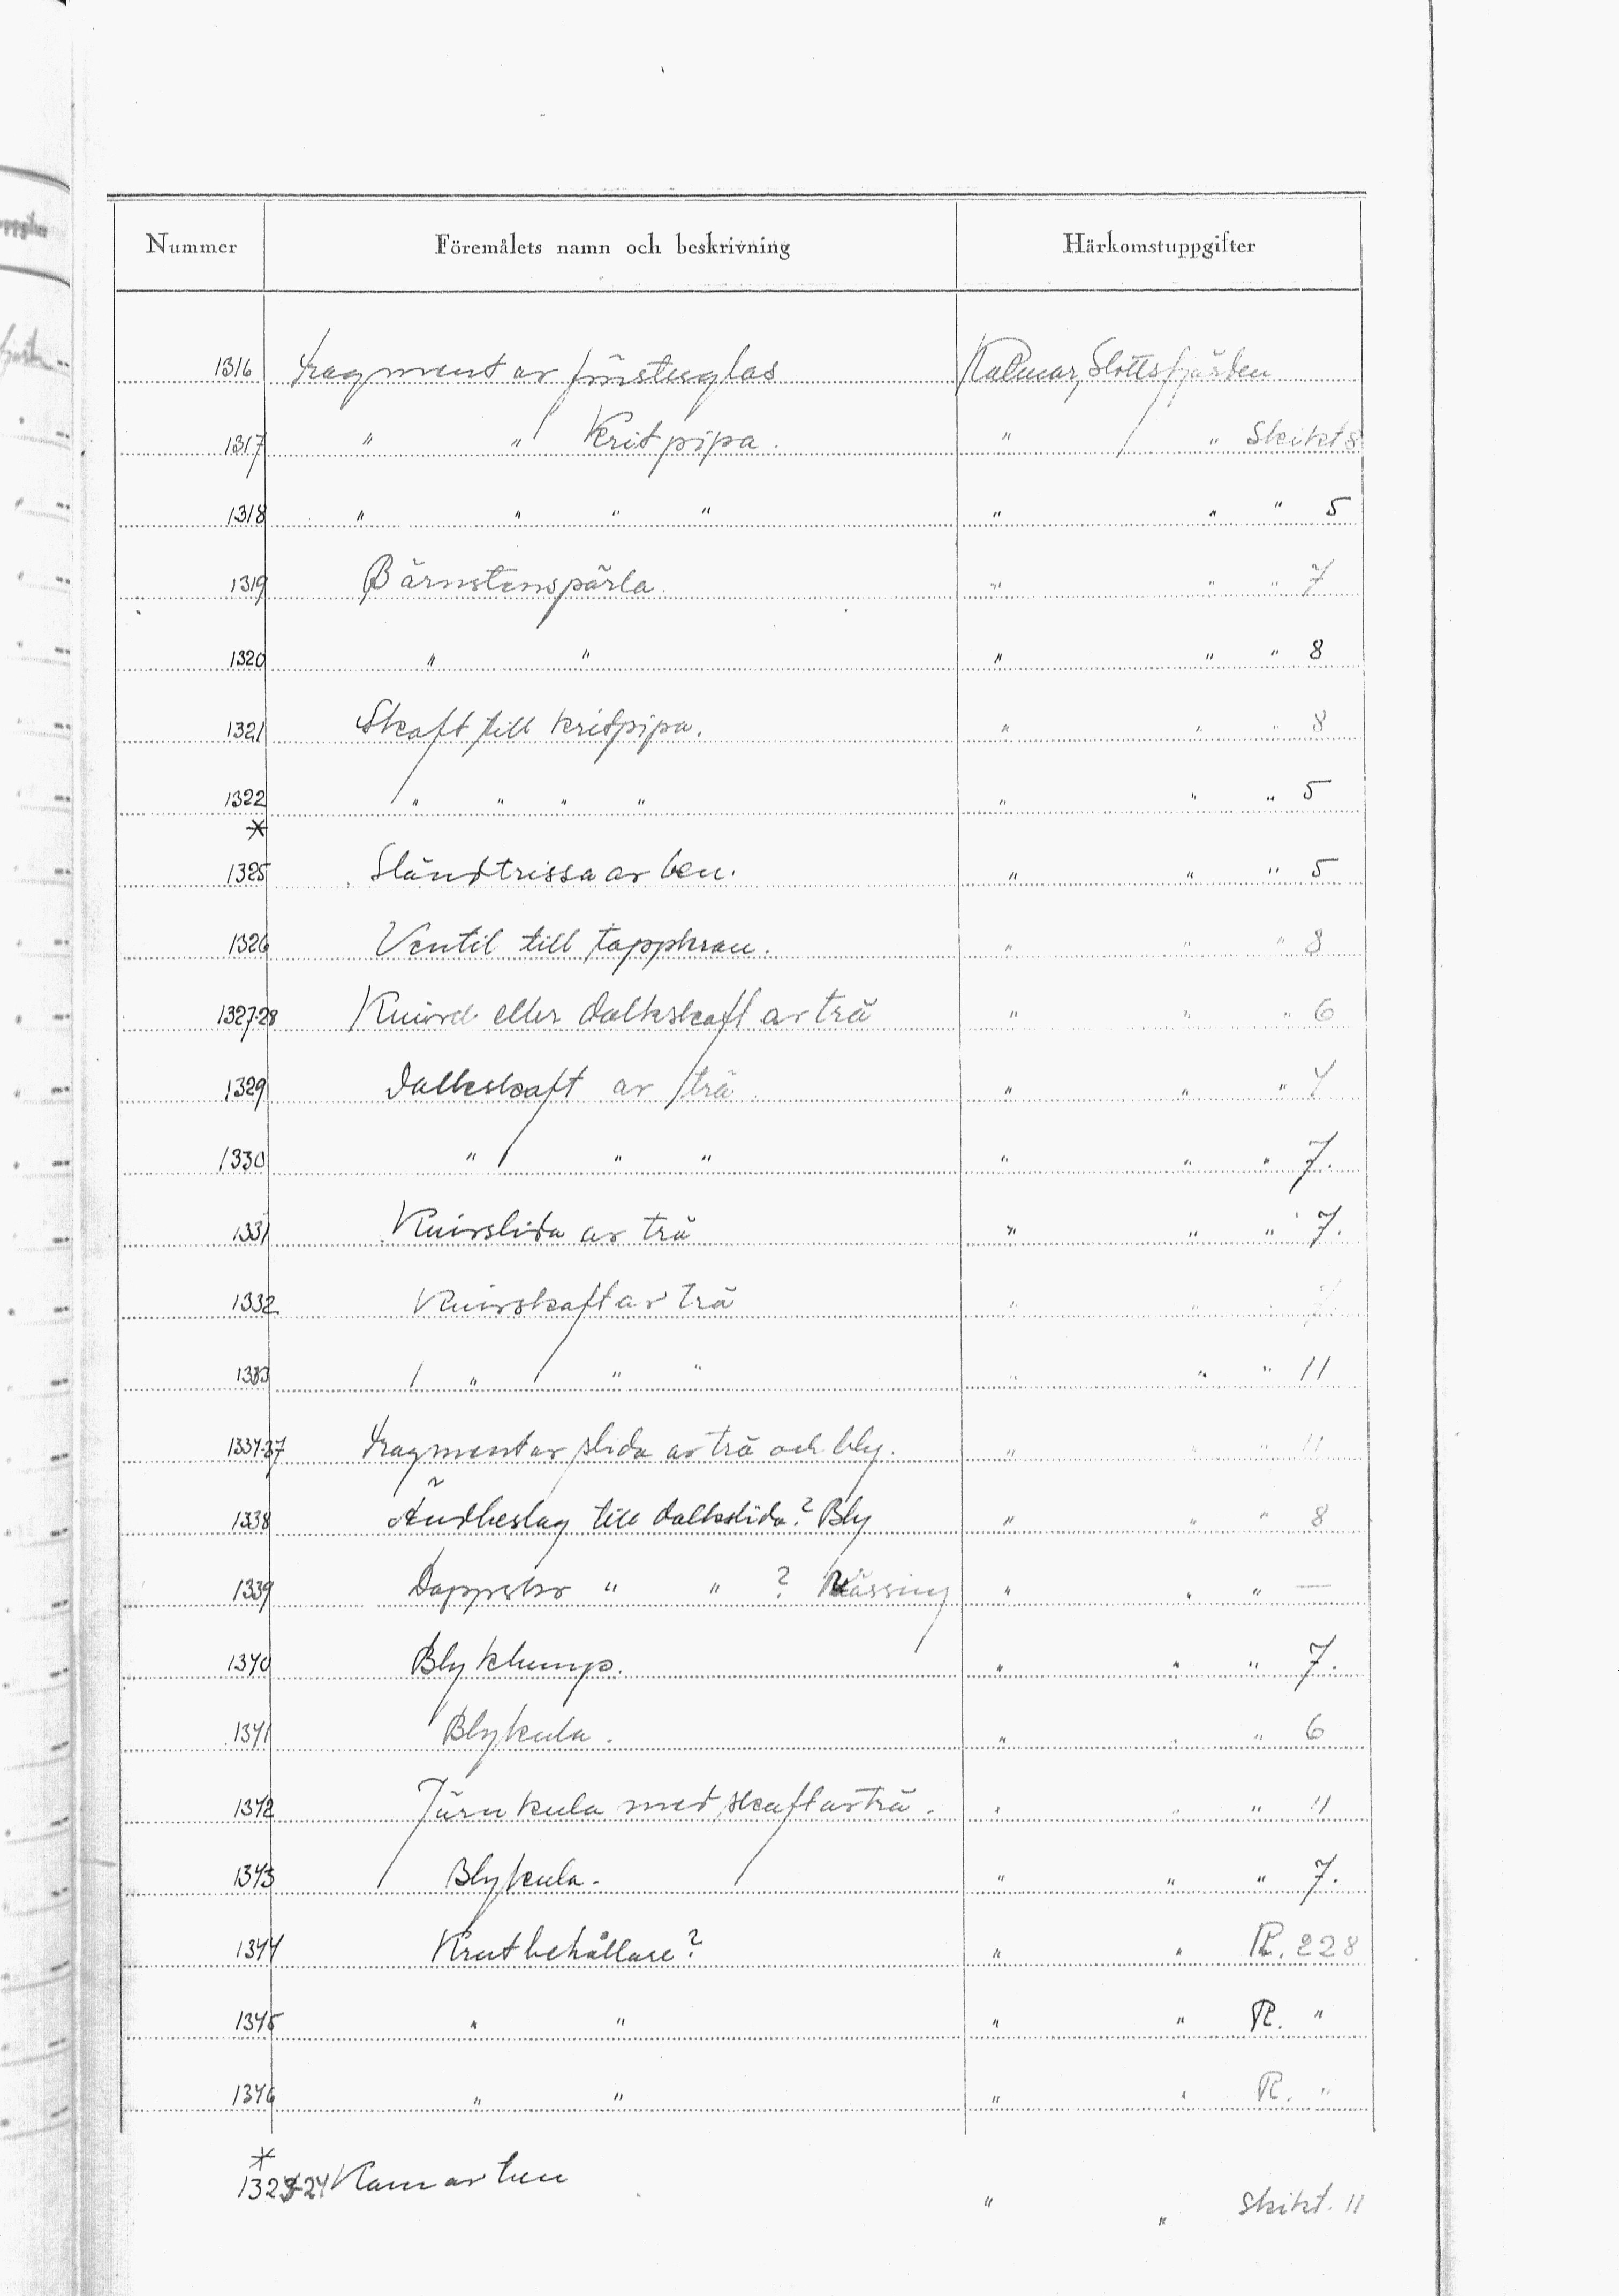 Nummer Föremålets namn och beskrivning Härkomstuppgifter
1316 Fragment av fönsterglas Kalmar, Slottsfjärden
1317 " " Kritpipa. " " Skikt 8
1318 " " " " " " " 5
1319 Bärnstenspärla. " " " 7
1320 " " " " " 8
1321 Skaft till kritpipa. " " " 8
1322 " " " " " " " 5
*
1325 Sländtrissa av ben. " " " 5
1326 Ventil till tappkran. " " " 8
1327-28 Knivd eller dolkskaft av trä " " " 6
1329 Dolkskaft av trä " " " 7
1330 " " " " " " 7.
1331 Knivslida av trä " " " 7.
1332 Knivskaft av trä " " " 7
1333 " " " " " " 11
1334-37 Fragment av slida av trä och bly. " " " 11
1338 Ändbeslag till dolkslida? Bly " " " 8
1339 Doppsko " " ? Mässing " " " —
1340 Blyklump. " " " 7.
1341 Blykula. " " " 6
1342 Järnkula med skaft av trä. " " " 11
1343 Blykula. " " " 7.
1344 Krutbehållare? " " R. 228
1345 " " " " R. "
1346 " " " " R. "
*
1323-24 Kam av ben " " skikt. 11